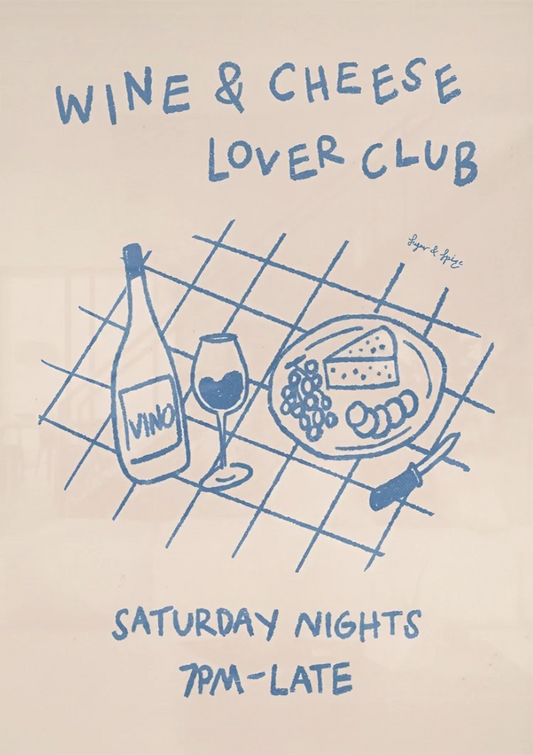 WINE & CHEESE
LOVER CLUB
Sugar & Spice
VINO
SATURDAY NIGHTS
7PM-LATE